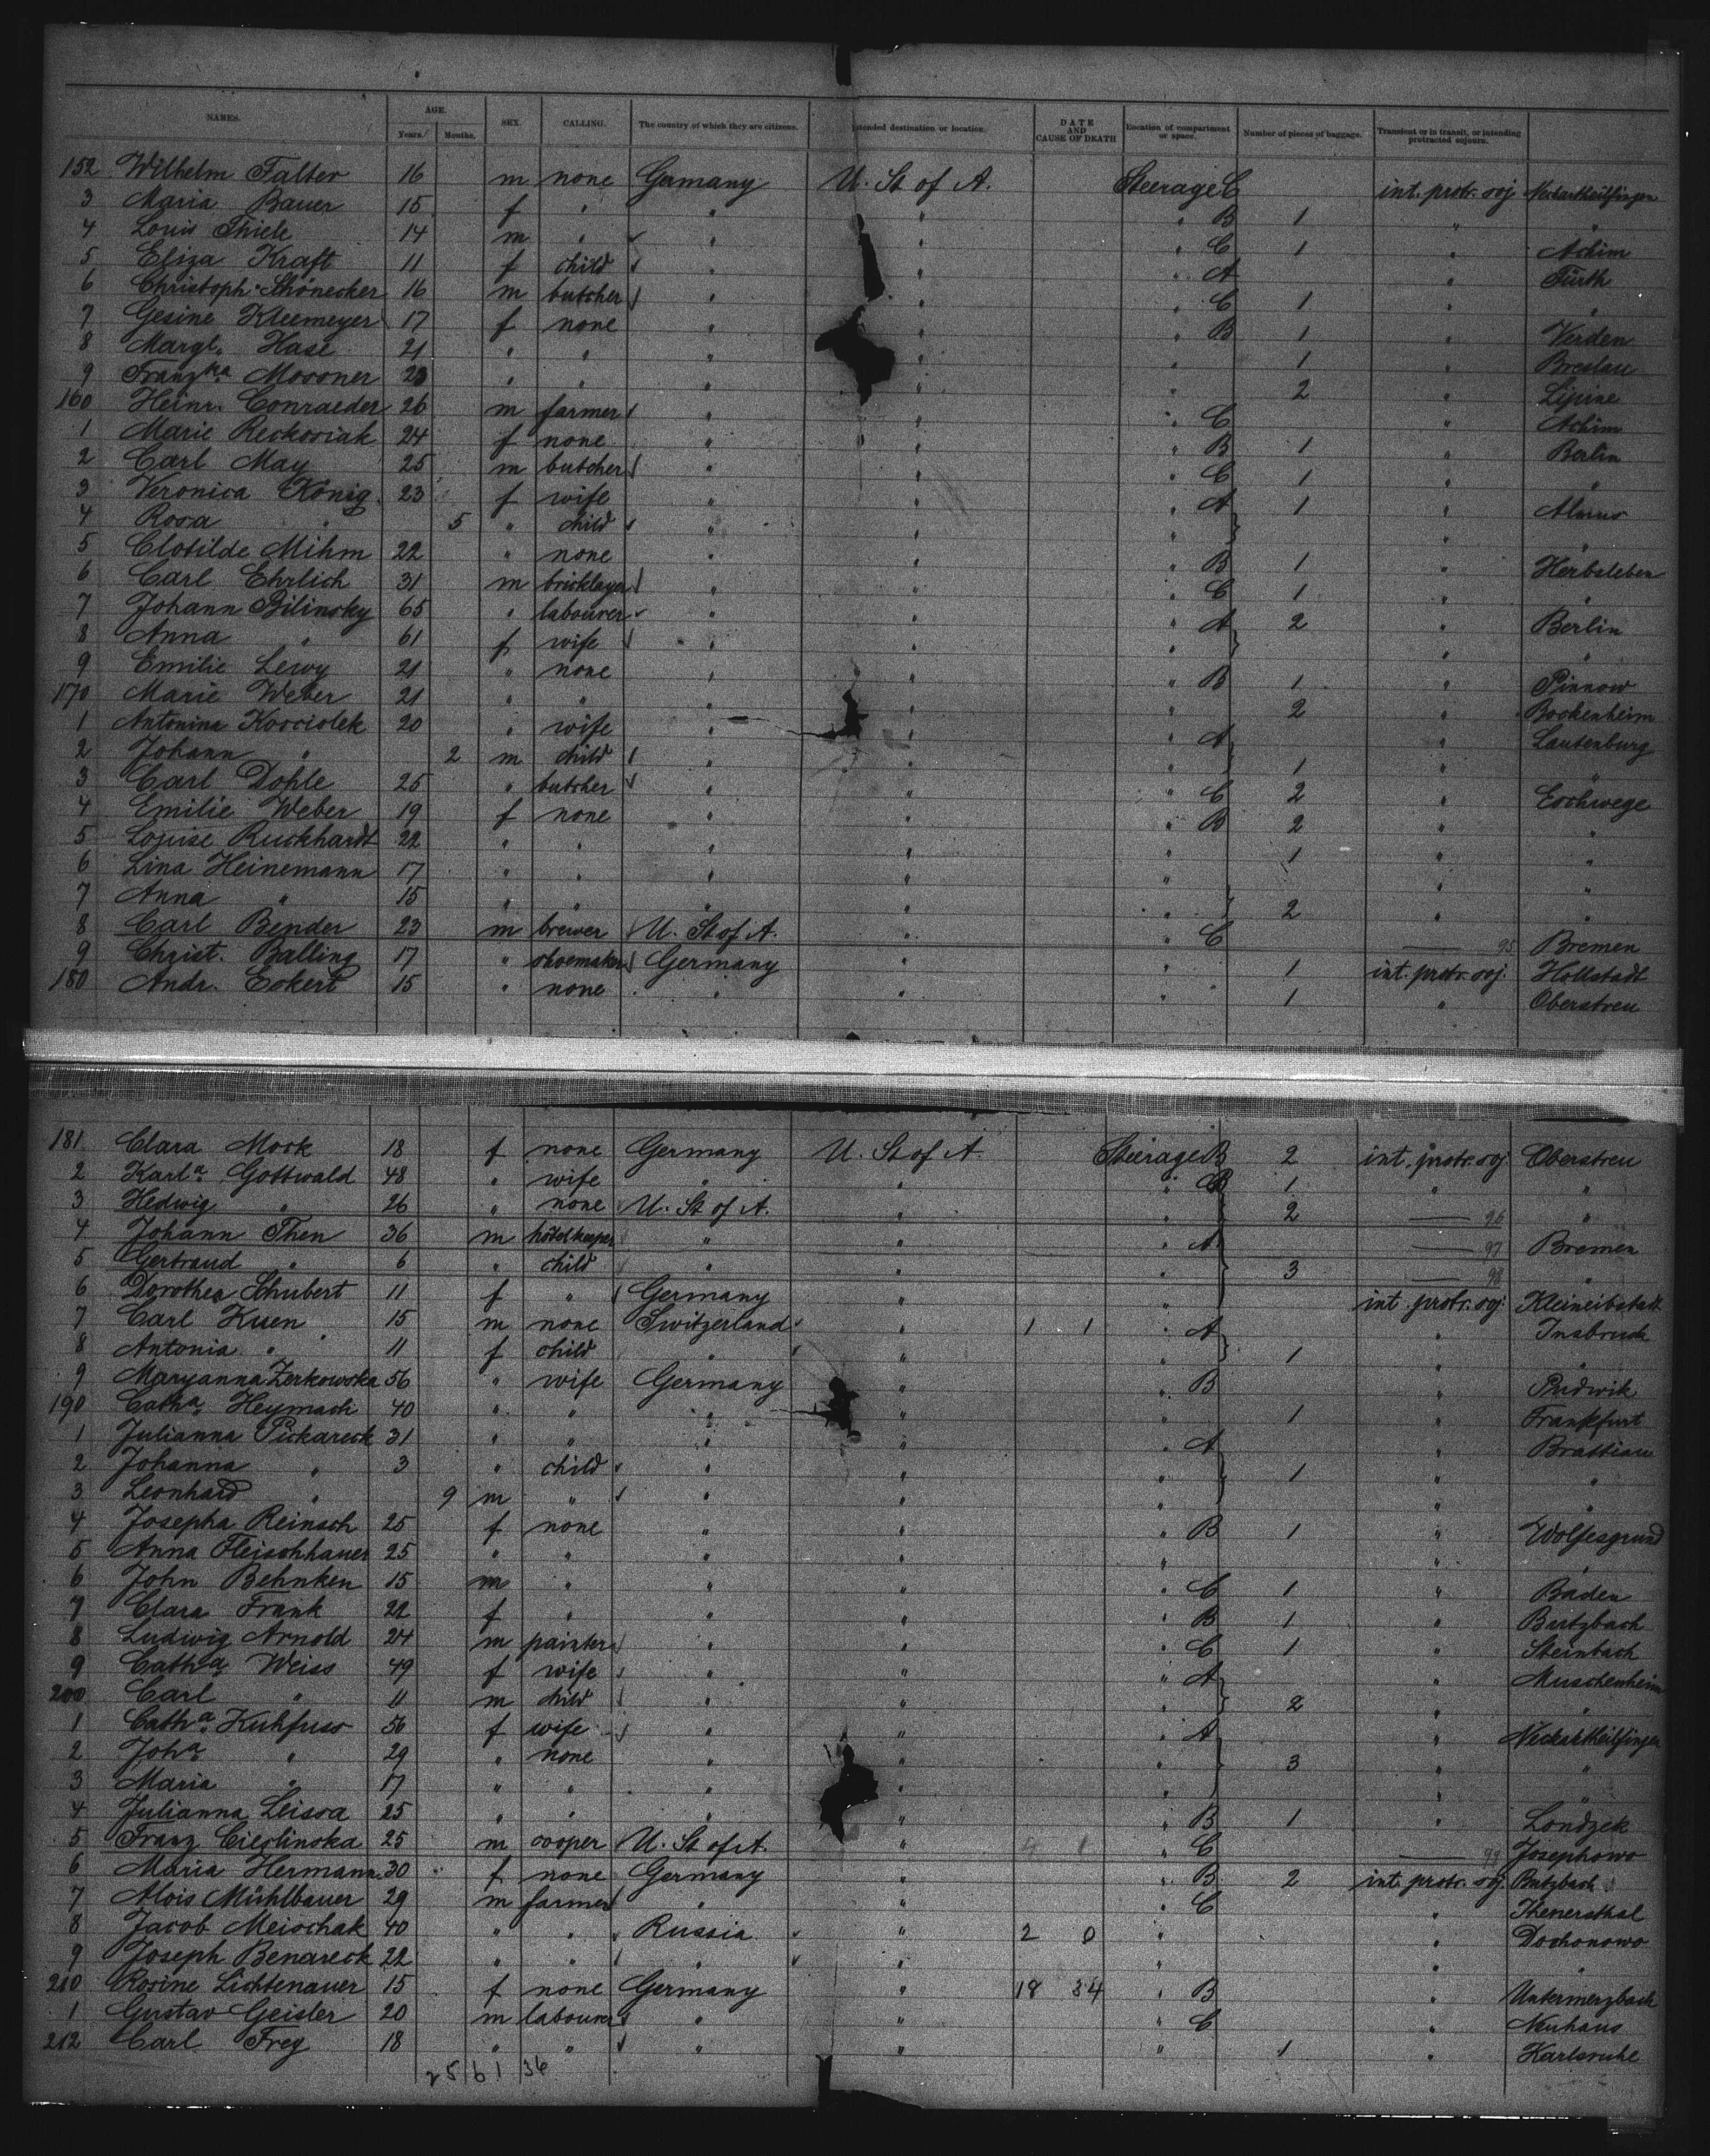 NAMES. AGE. Years. Months. SEX. CALLING. The country of which they are citizens. Intended destination or location. DATE AND CAUSE OF DEATH Location of compartment or space. Number of pieces of baggage. Transient or in transit, or intending protracted sojourn.
152 Wilhelm Falter 16 m none Germany U. St of A. Steerage C int. protr. soj Neckartheilfingen
3 Maria Bauer 15 f " " " " B 1 " "
4 Louis Thiele 14 m " " " " C 1 " Achim
5 Eliza Kraft 11 f child " " " A " Fürth
6 Christoph Schönecker 16 m butcher " " " C 1 " "
7 Gesine Kleemeyer 17 f none " " " B 1 " Verden
8 Margt. Hase 21 " " " " " 1 " Breslau
9 Franzka Mosoner 23 " " " " " 2 " Lipine
160 Heinr. Conraeder 26 m farmer " " " C " Achim
1 Marie Reckosiak 24 f none " " " B 1 " Berlin
2 Carl May 25 m butcher " " " C 1 " "
3 Veronica König 23 f wife " " " A 1 " Alsmus
4 Rosa " 5 " child " " " " "
5 Clotilde Mihm 22 " none " " " B 1 " Herbsleben
6 Carl Ehrlich 31 m bricklayer " " " C 1 " "
7 Johann Bilinsky 65 " labourer " " " A 2 " Berlin
8 Anna " 61 f wife " " " " "
9 Emilie Lewy 21 " none " " " B 1 " Pinnow
170 Marie Weber 21 " " " " " 2 " Bockenheim
1 Antonina Kosciolek 20 " wife " " " A " Lautenburg
2 Johann " 2 m child " " " 1 " "
3 Carl Dohle 25 " butcher " " " C 2 " Eschwege
4 Emilie Weber 19 f none " " " B 2 " "
5 Louise Ruckhardt 22 " " " " " 1 " "
6 Lina Heinemann 17 " " " " " " "
7 Anna " 15 " " " " " 2 " "
8 Carl Bender 23 m brewer U. St of A. " " C 95 Bremen
9 Christ. Balling 17 " shoemaker Germany " " 1 int. protr. soj. Hollstadt
180 Andr. Eckert 15 " none " " " 1 " Oberstreu
181 Clara Mock 18 f none Germany U. St of A Steerage B 2 int. protr. soj Oberstreu
2 Karla Gottwald 48 " wife " " " B 1 " "
3 Hedwig " 26 " none U. St of A. " " 2 96 "
4 Johann Then 36 m hotelkeeper " " " A 97 Bremen
5 Gertraud " 6 " child " " " 3 98 "
6 Dorothea Schubert 11 f " Germany " " int. protr. soj. Kleineibstadt
7 Carl Kuen 15 m none Switzerland " 1 1 " A " Insbruck
8 Antonia " 11 f child " " 1 " "
9 Maryanna Zerkowska 56 " wife Germany " " B " Pudwik
190 Catha Heymach 40 " " " " " 1 " Frankfurt
1 Julianna Pickareck 31 " " " " " A " Brattian
2 Johanna " 3 " child " " " 1 " "
3 Leonhard " 9 m " " " " " "
4 Josepha Reinsch 25 f none " " " B 1 " Wolfesgrund
5 Anna Fleischhauer 25 " " " " " " "
6 John Behnken 15 m " " " " C 1 " Baden
7 Clara Frank 22 f " " " " B 1 " Butzbach
8 Ludwig Arnold 24 m painter " " " C 1 " Steinbach
9 Catha Weiss 49 f wife " " " A " Muschenheim
200 Carl " 11 m child " " " 2 " "
1 Catha Kuhfuss 56 f wife " " " A " Neckartheilfingen
2 Joha " 29 " none " " " 3 " "
3 Maria " 17 " " " " " " "
4 Julianna Leissa 25 " " " " " B 1 " Londzek
5 Franz Cieslinska 25 m cooper U. St of A. " " C 99 Josephowo
6 Maria Hermann 30 f none Germany " " B 2 int. protr. soj. Butzbach
7 Alois Mühlbauer 29 m farmer " " " C " Thenersthal
8 Jacob Meischak 40 " " Russia " 2 0 " " Dochonowo
9 Joseph Benareck 22 " " " " " " "
210 Rosine Lichtenauer 15 f none Germany " 18 34 " B " Untermerzbach
1 Gustav Geisler 20 m labourer " " " C " Neuhaus
212 Carl Frey 18 " " " " " 1 " Karlsruhe
25 61 36